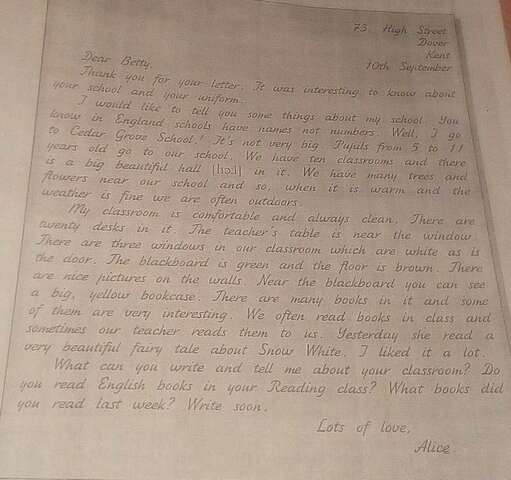 75, High Street
Dover
Kent
10th September
Dear Betty,
Thank you for your letter. It was interesting to know about
your school and your uniform.
I would like to tell you some things about my school. You
know in England schools have names not numbers. Well, I go
to Cedar Grove School! It's not very big. Pupils from 5 to 11
years old go to our school. We have ten classrooms and there
is a big beautiful hall [hɔ:l] in it. We have many trees and
flowers near our school and so, when it is warm and the
weather is fine we are often outdoors.
My classroom is comfortable and always clean. There are
twenty desks in it. The teacher's table is near the window.
There are three windows in our classroom which are white as is
the door. The blackboard is green and the floor is brown. There
are nice pictures on the walls. Near the blackboard you can see
a big, yellow bookcase. There are many books in it and some
of them are very interesting. We often read books in class and
sometimes our teacher reads them to us. Yesterday she read a
very beautiful fairy tale about Snow White. I liked it a lot.
What can you write and tell me about your classroom? Do
you read English books in your Reading class? What books did
you read last week? Write soon.
Lots of love,
Alice.